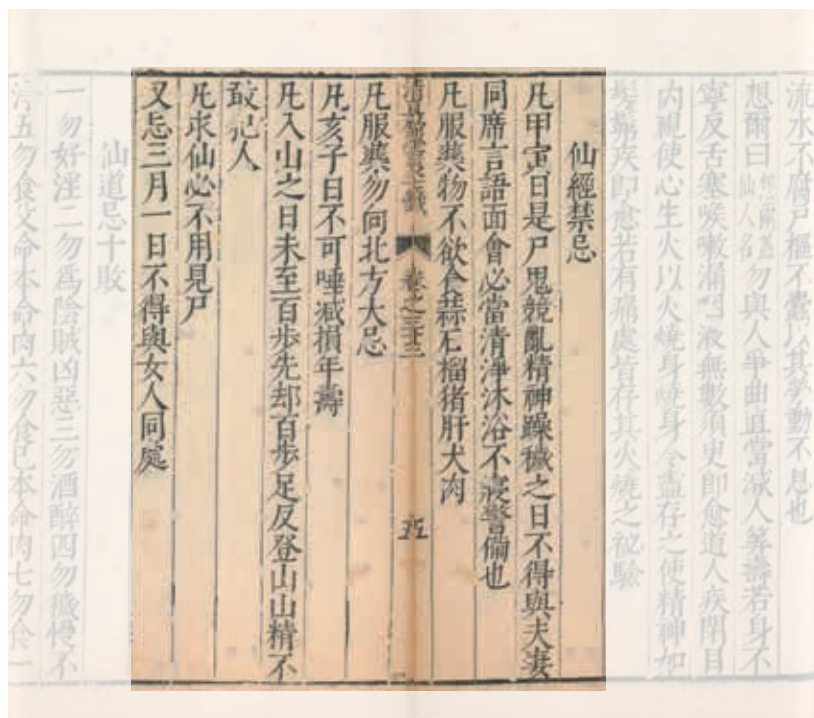 流水不腐戶樞不蠹以其勞動不息也
想爾曰想爾蓋仙人名勿與人爭曲直當減人筭壽若身不
寧反舌塞喉嗽漏咽液無數須臾即愈道人疾閉目
內視使心生火以火燒身燒身令盡存之使精神如
髣髴疾即愈若有痛處皆存其火燒之祕驗
仙經禁忌
凡甲寅日是尸鬼競亂精神躁穢之日不得與夫妻
同席言語面會必當清淨沐浴不寢警備也
凡服藥物不欲食蒜石榴猪肝犬肉
卷之三十三
五
凡服藥勿向北方大忌
凡亥子日不可唾減損年壽
凡入山之日未至百步先却百步足反登山山精不
敢犯人
凡求仙必不用見尸
又忌三月一日不得與女人同處
仙道忌十敗
一勿好淫二勿爲陰賊凶惡三勿酒醉四勿穢慢不
淨五勿食父命本命肉六勿食己本命肉七勿食一